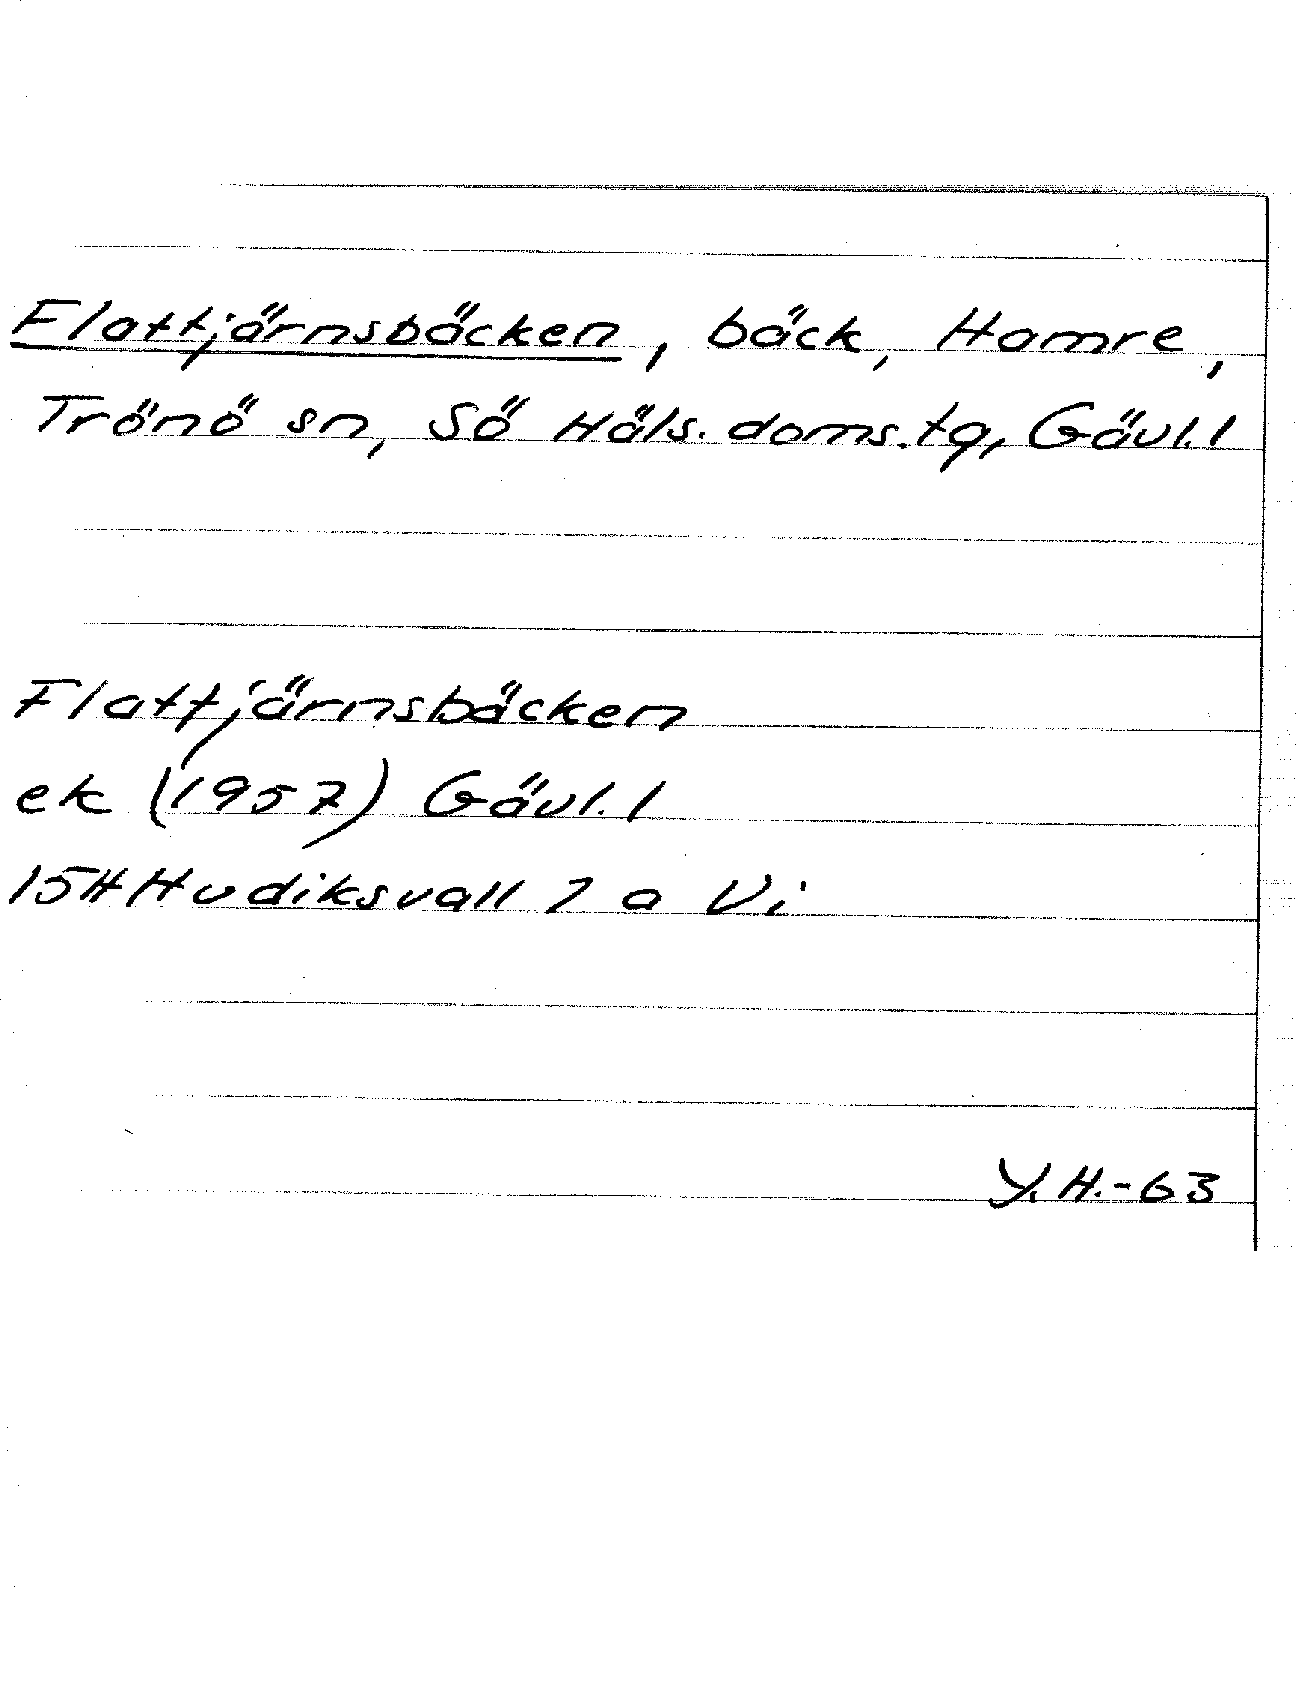 Flattjärnsbäcken, bäck, Hamre,
Trönö sn, Sö Häls. doms.tg, Gävl. l
Flattjärnsbäcken
ek (1957) Gävl. l
15H Hudiksvall 7 a Vi
Y.H.-63